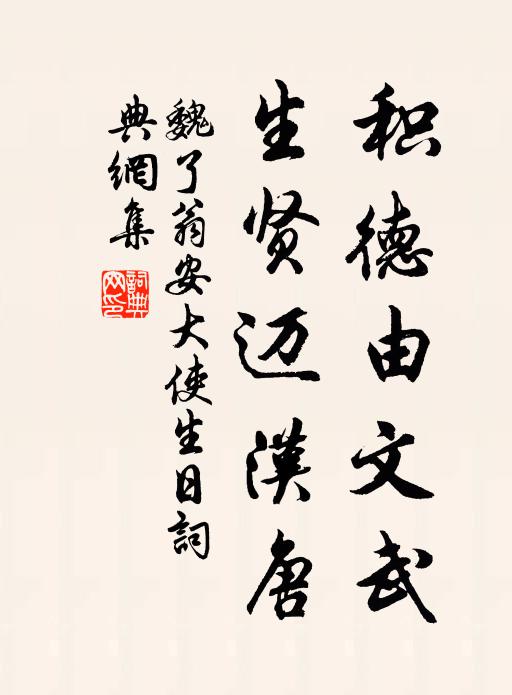 积德由文武
生贤迈漢唐
魏了翁安大使生日詞
典網集
詞典网印